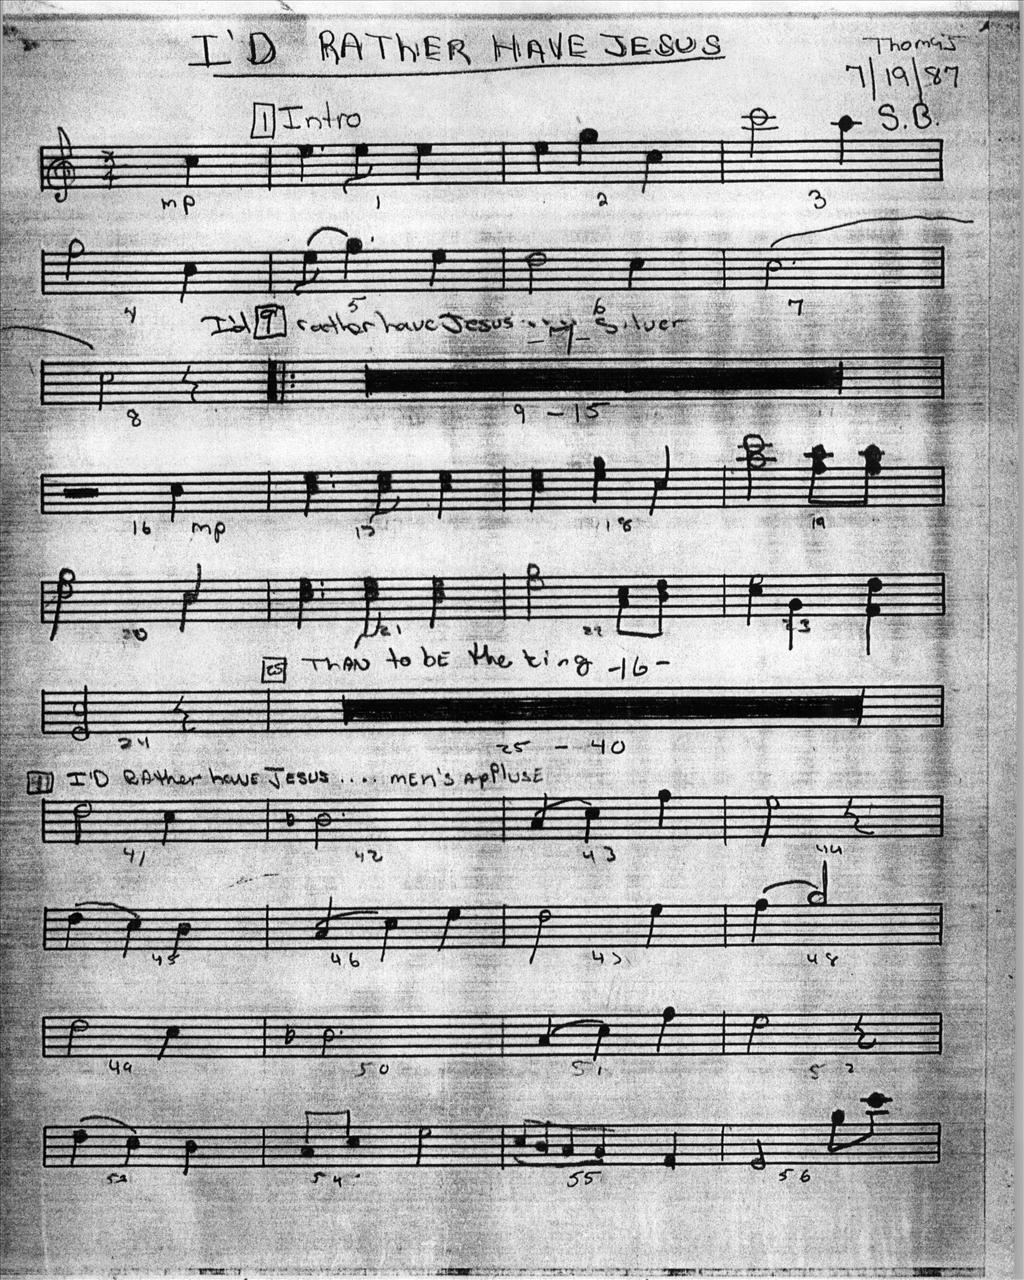 I'D RATHER HAVE JESUS
Thomas
7/19/87
S.B.
1 Intro
mp 1 2 3
4 5 6 7
I'd 9 rather have Jesus ... Silver
-7-
8 9 - 15
16 mp 17 18 19
20 21 22 23
25 THAN to bE the king -16-
24 25 - 40
I'D RAther have JESUS ..... mEN'S ApPluSE
41 42 43 44
45 46 47 48
49 50 51 52
53 54 55 56